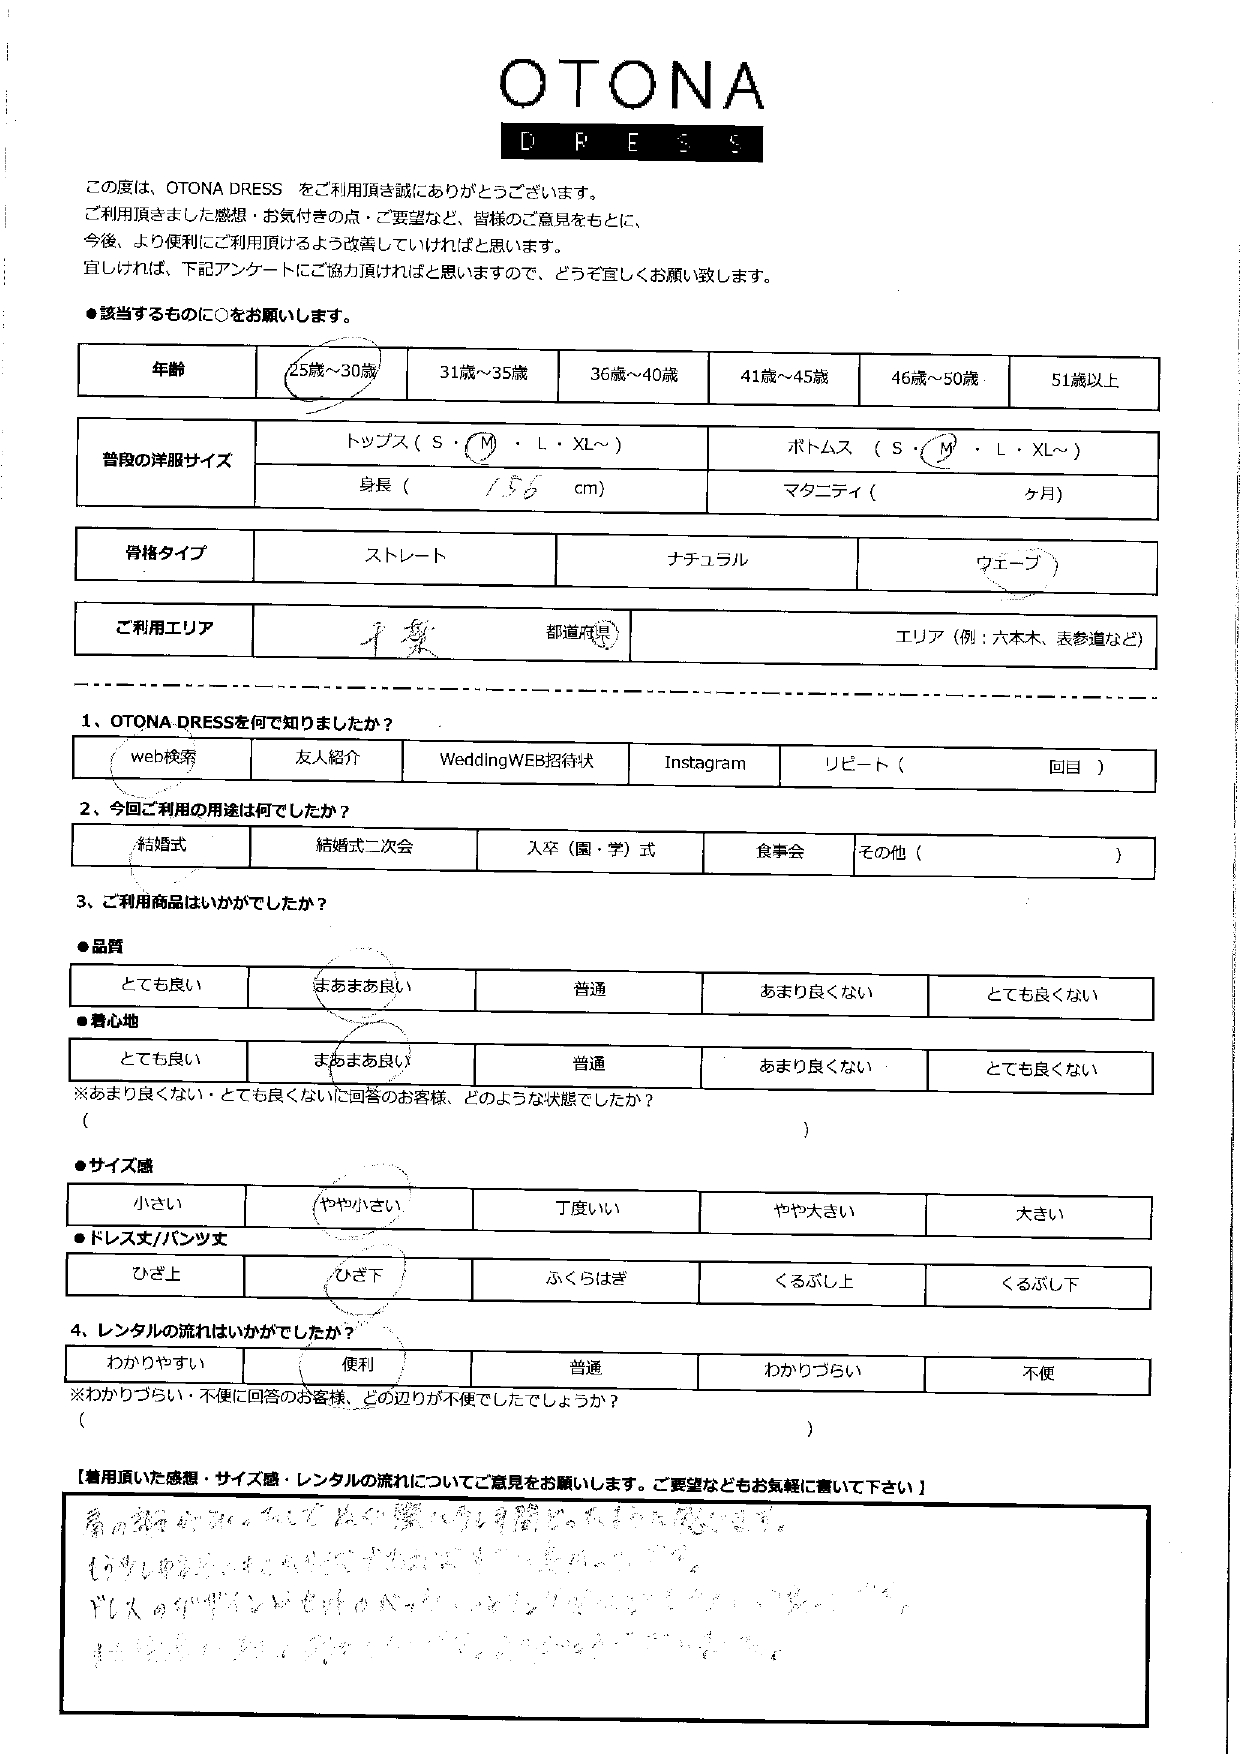 OTONA
DRESS
この度は、OTONA DRESS をご利用頂き誠にありがとうございます。
ご利用頂きました感想・お気付きの点・ご要望など、皆様のご意見をもとに、
今後、より便利にご利用頂けるよう改善していければと思います。
宜しければ、下記アンケートにご協力頂ければと思いますので、どうぞ宜しくお願い致します。
●該当するものに○をお願いします。
年齢 25歳～30歳 31歳～35歳 36歳～40歳 41歳～45歳 46歳～50歳 51歳以上
普段の洋服サイズ トップス ( S ・ M ・ L ・ XL～ ) ボトムス ( S ・ M ・ L ・ XL～ )
身長 ( 156 cm) マタニティ ( ヶ月)
骨格タイプ ストレート ナチュラル ウエーブ
ご利用エリア 千葉 都道府県 エリア（例：六本木、表参道など）
1、OTONA DRESSを何で知りましたか？
web検索 友人紹介 WeddingWEB招待状 Instagram リピート ( 回目 )
2、今回ご利用の用途は何でしたか？
結婚式 結婚式二次会 入卒（園・学）式 食事会 その他 ( )
3、ご利用商品はいかがでしたか？
●品質
とても良い まあまあ良い 普通 あまり良くない とても良くない
●着心地
とても良い まあまあ良い 普通 あまり良くない とても良くない
※あまり良くない・とても良くないに回答のお客様、どのような状態でしたか？
( )
●サイズ感
小さい やや小さい 丁度いい やや大きい 大きい
●ドレス丈/パンツ丈
ひざ上 ひざ下 ふくらはぎ くるぶし上 くるぶし下
4、レンタルの流れはいかがでしたか？
わかりやすい 便利 普通 わかりづらい 不便
※わかりづらい・不便に回答のお客様、どの辺りが不便でしたでしょうか？
( )
【着用頂いた感想・サイズ感・レンタルの流れについてご意見をお願いします。ご要望などもお気軽に書いて下さい】
もう少し
ドレスのデザイン